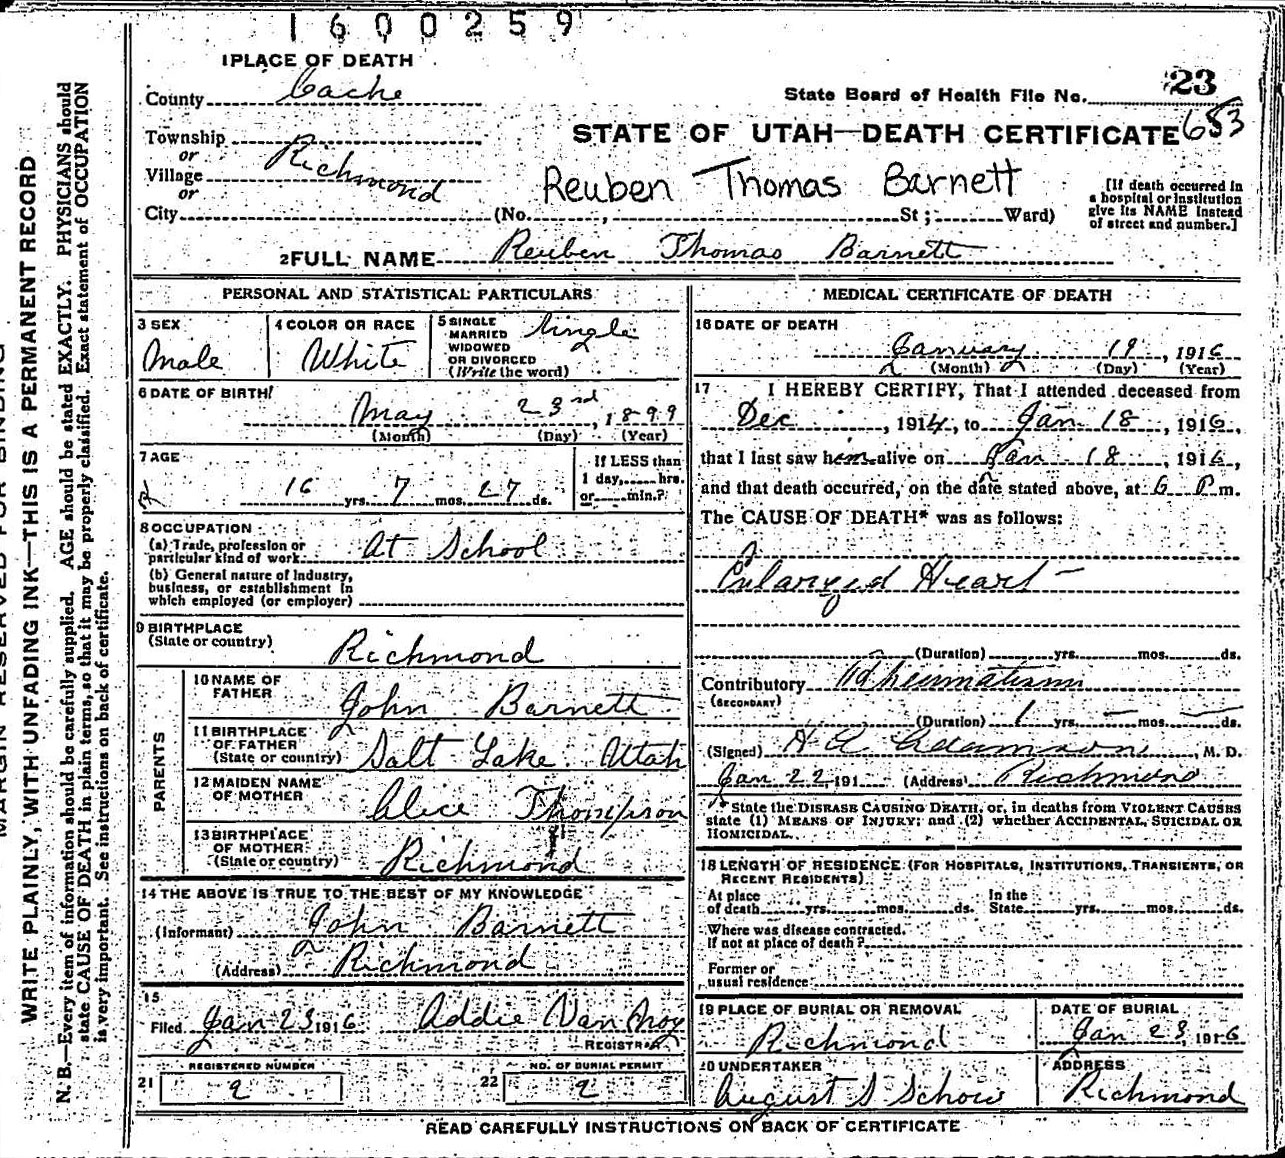 1600259
1 PLACE OF DEATH
County Cache
State Board of Health File No. 23
653
Township
or
Village Richmond
or
City (No. , St; Ward)
STATE OF UTAH—DEATH CERTIFICATE
Reuben Thomas Barnett
[If death occurred in
a hospital or institution
give its NAME instead
of street and number.]
2 FULL NAME Reuben Thomas Barnett
PERSONAL AND STATISTICAL PARTICULARS
3 SEX
Male
4 COLOR OR RACE
White
5 SINGLE
MARRIED
WIDOWED
OR DIVORCED
(Write the word)
Single
6 DATE OF BIRTH
May 23rd, 1899
(Month) (Day) (Year)
7 AGE
16 yrs. 7 mos. 27 ds.
If LESS than
1 day, hrs.
or min.?
8 OCCUPATION
(a) Trade, profession or
particular kind of work At School
(b) General nature of Industry,
business, or establishment in
which employed (or employer)
9 BIRTHPLACE
(State or country) Richmond
PARENTS
10 NAME OF
FATHER John Barnett
11 BIRTHPLACE
OF FATHER
(State or country) Salt Lake Utah
12 MAIDEN NAME
OF MOTHER Alice Thompson
13 BIRTHPLACE
OF MOTHER
(State or country) Richmond
14 THE ABOVE IS TRUE TO THE BEST OF MY KNOWLEDGE
(Informant) John Barnett
(Address) Richmond
15
Filed Jan 23 1916 Addie Van
REGISTRAR
REGISTERED NUMBER
21 2
NO. OF BURIAL PERMIT
22 2
MEDICAL CERTIFICATE OF DEATH
16 DATE OF DEATH
January 19, 1916
(Month) (Day) (Year)
17 I HEREBY CERTIFY, That I attended deceased from
Dec , 1914, to Jan 18, 1916,
that I last saw him alive on Jan 18, 1916,
and that death occurred, on the date stated above, at 6 P m.
The CAUSE OF DEATH* was as follows:
Enlarged Heart
(Duration) yrs. mos. ds.
Contributory Rheumatism
(SECONDARY)
(Duration) 1 yrs. — mos. — ds.
(Signed) H A Adamson, M. D.
Jan 22 191 (Address) Richmond
* State the DISEASE CAUSING DEATH, or, in deaths from VIOLENT CAUSES
state (1) MEANS OF INJURY; and (2) whether ACCIDENTAL, SUICIDAL OR
HOMICIDAL.
18 LENGTH OF RESIDENCE (FOR HOSPITALS, INSTITUTIONS, TRANSIENTS, OR
RECENT RESIDENTS)
At place
of death yrs. mos. ds.
In the
State yrs. mos. ds.
Where was disease contracted.
If not at place of death?
Former or
usual residence
19 PLACE OF BURIAL OR REMOVAL
Richmond
DATE OF BURIAL
Jan 23 1916
20 UNDERTAKER
August S Schow
ADDRESS
Richmond
READ CAREFULLY INSTRUCTIONS ON BACK OF CERTIFICATE
MARGIN RESERVED FOR BINDING
WRITE PLAINLY, WITH UNFADING INK—THIS IS A PERMANENT RECORD
N. B.—Every item of information should be carefully supplied. AGE should be stated EXACTLY. PHYSICIANS should
state CAUSE OF DEATH in plain terms, so that it may be properly classified. Exact statement of OCCUPATION
is very important. See instructions on back of certificate.